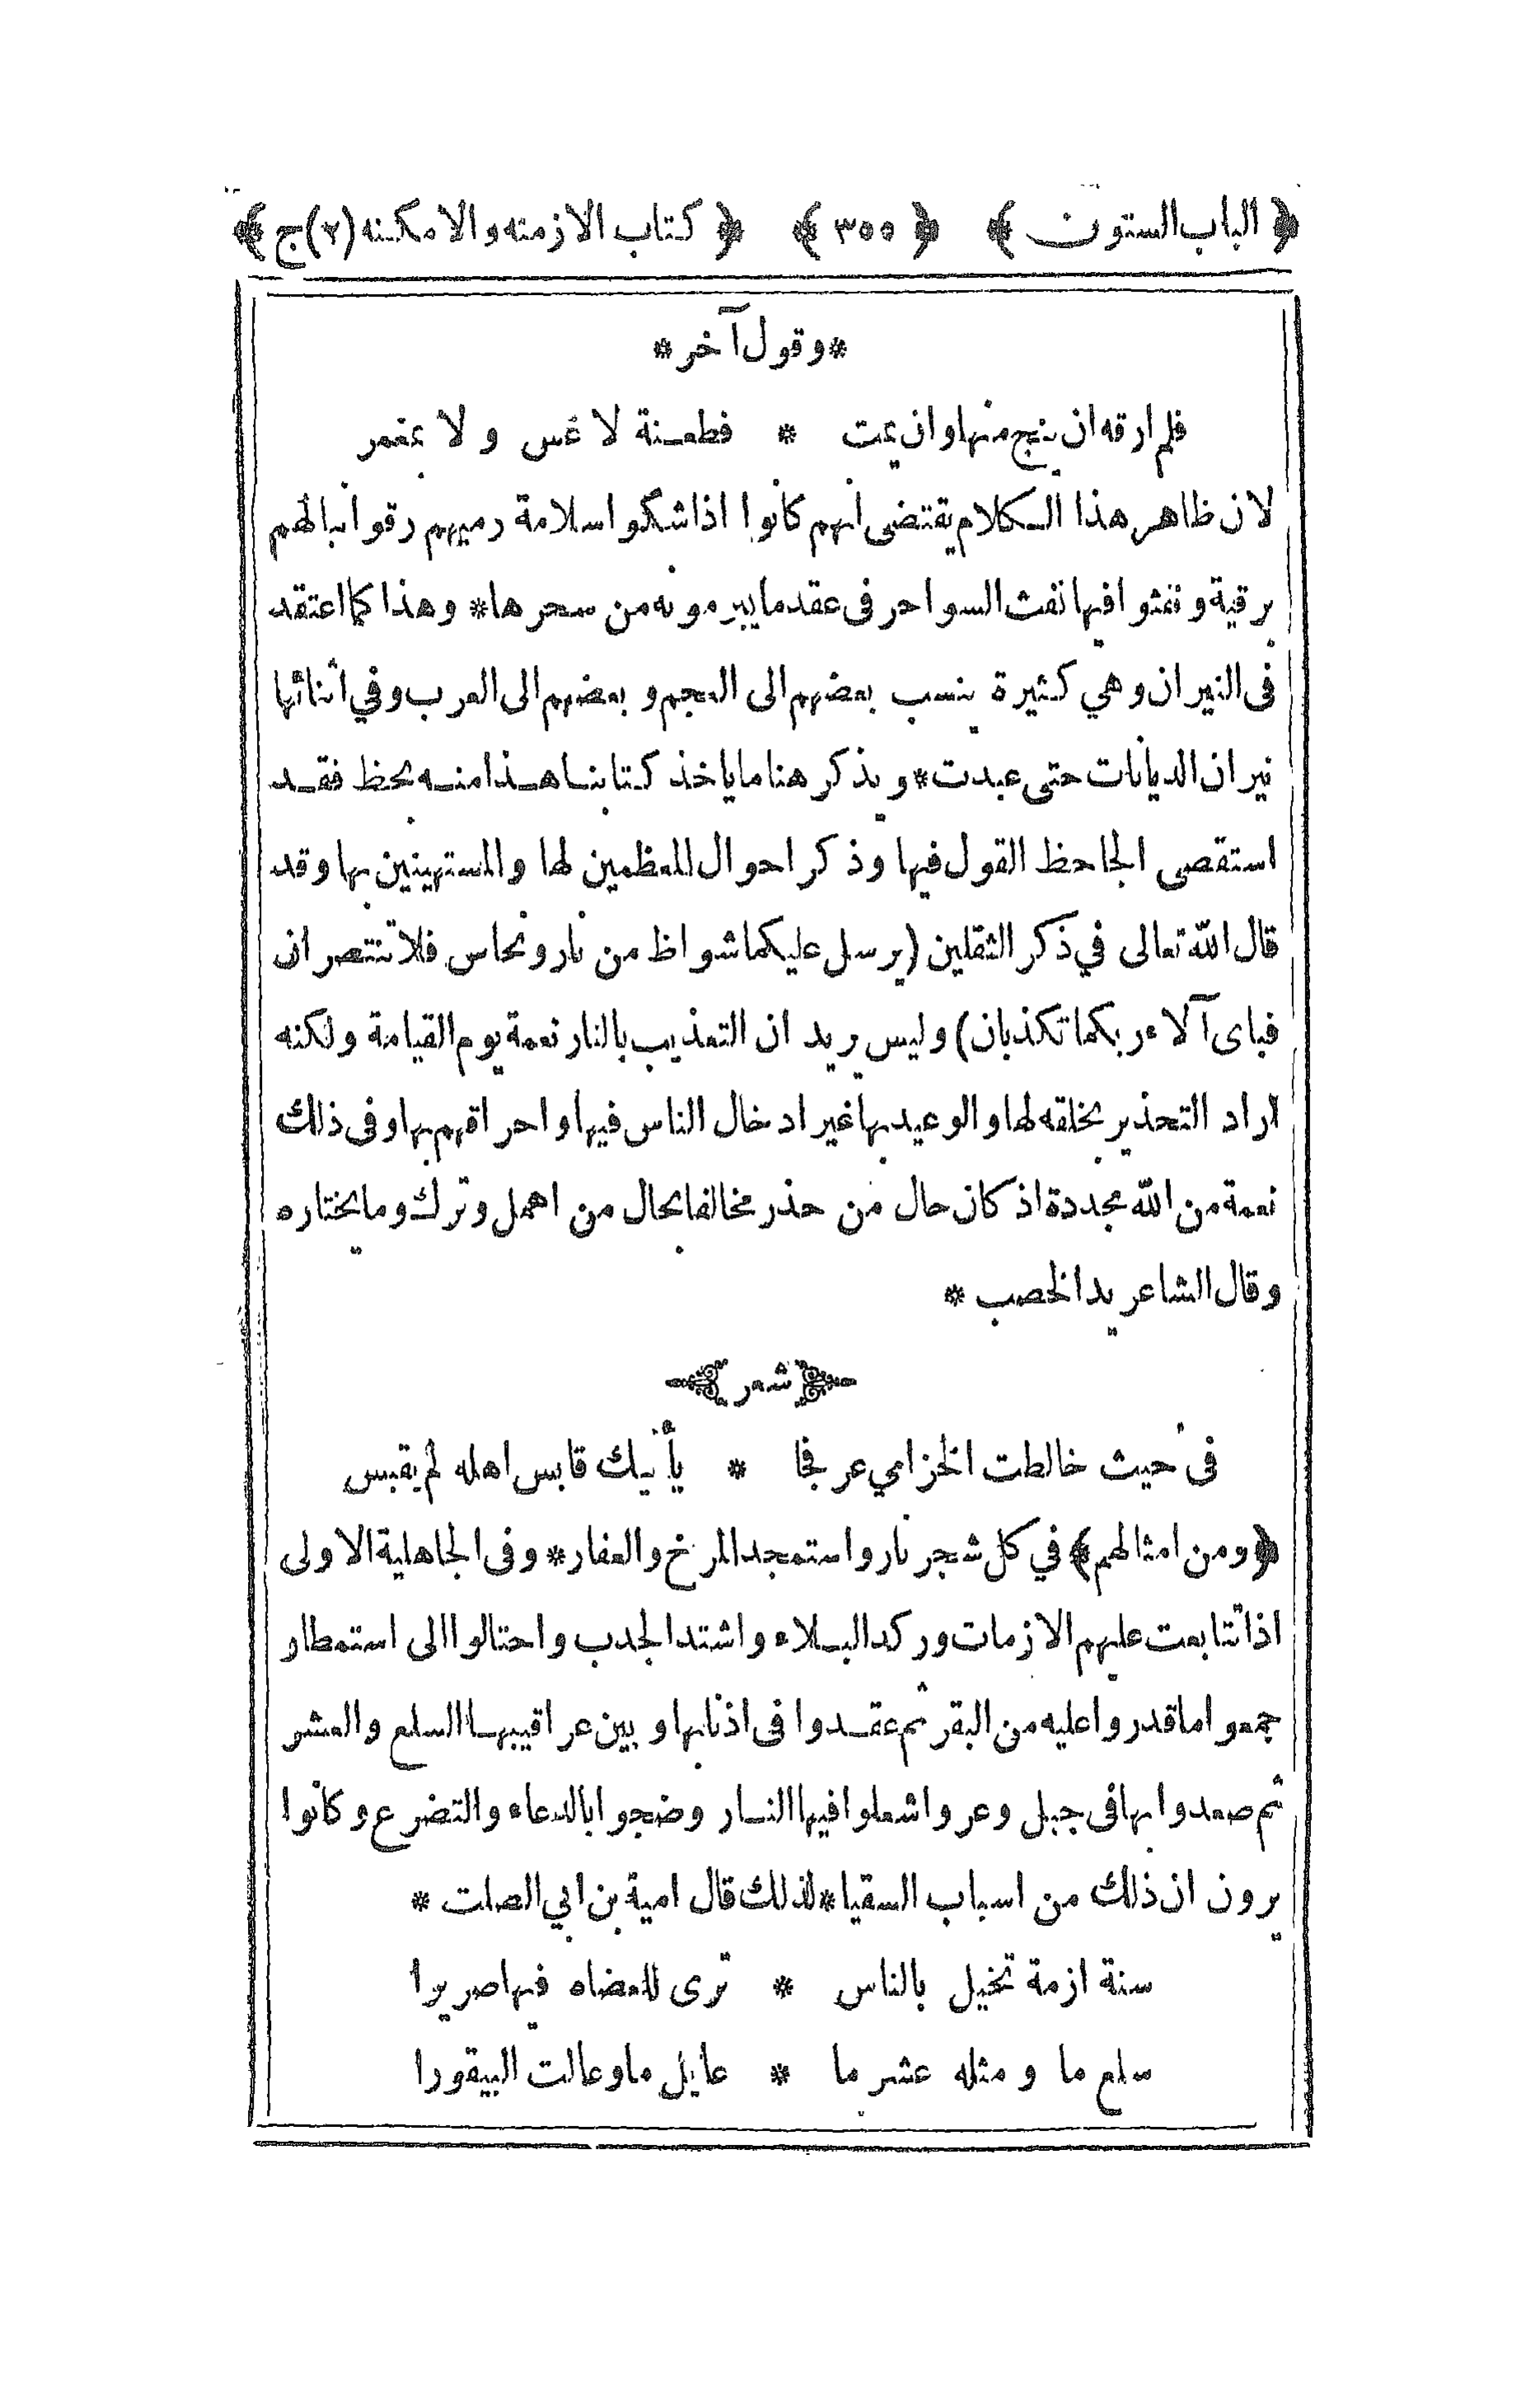 ﴿ الباب الستون ﴾ ﴿ ٣٥٥ ﴾ ﴿ كتاب الازمنه والامكنه (٢) ج ﴾
* وقول آخر *
فلم ارقه ان ينج منها وان يمت * فطعنة لا غس و لا بمغمر
لان ظاهر هذا الكلام يقتضى انهم كانوا اذا شكوا سلامة رميهم رقوا نبالهم
برقية ونفثوا فيها نفث السواحر فى عقد ما يبرمونه من سحرها * وهذا كما اعتقد
فى النيران وهي كثيرة ينسب بعضهم الى العجم و بعضهم الى العرب وفي أثنائها
نيران الديانات حتى عبدت * و يذكر هنا ما ياخذ كتابنا هذا منه بحظ فقد
استقصى الجاحظ القول فيها وذكر احوال للمعظمين لها والمستهينين بها وقد
قال الله تعالى في ذكر الثقلين (يرسل عليكما شواظ من نار ونحاس فلا تنتصران
فباى آلاء ربكما تكذبان) وليس يريد ان التعذيب بالنار نعمة يوم القيامة ولكنه
اراد التحذير بخلقه لها والوعيد بها غير ادخال الناس فيها واحراقهم بها وفى ذلك
نعمة من الله مجددة اذ كان حال من حذر مخالفا بحال من اهمل وترك وما يختاره
وقال الشاعر يد الخصب *
شعر
فى حيث خالطت الخزامي عرفجا * يأتيك قابس اهله لم يقبس
﴿ ومن امثالهم ﴾ في كل شجر نار واستمجد المرخ والعفار * وفى الجاهلية الاولى
اذا تتابعت عليهم الازمات وركد البلاء واشتد الجدب واحتالوا الى استمطار
جمعوا ما قدروا عليه من البقر ثم عقدوا فى اذنابها و بين عراقيبها السلع والعشر
ثم صعدوا بها فى جبل وعر واشعلوا فيها النار وضجوا بالدعاء والتضرع وكانوا
يرون ان ذلك من اسباب السقيا * لذلك قال امية بن ابي الصلت *
سنة ازمة تخيل بالناس * ترى للعضاه فيها صريرا
سلع ما و مثله عشر ما * عايل ما وعالت البيقورا